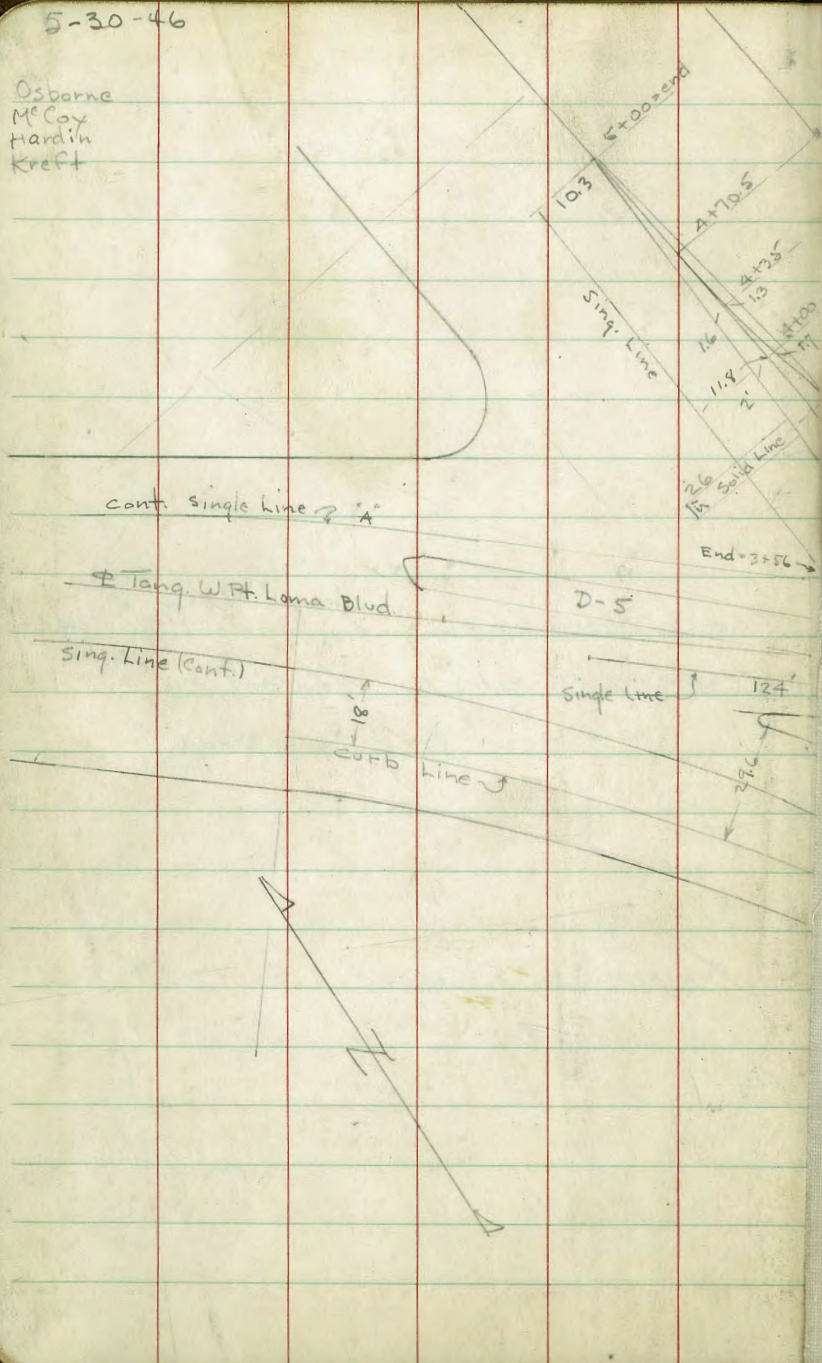 5-30-46
Osborne
McCoy
Hardin
Kreft
5+00=end
10.3
4+70.5
4+35
1.3
Sing. Line
1.6
4+00
1.7
11.8
2'
Solid Line
26
cont. Single Line "A"
End=3+56
℄ Tang. W. Pt. Loma Blvd.
D-5
Sing. Line (Cont.)
Single Line
124'
18'
29.6
Curb Line
N